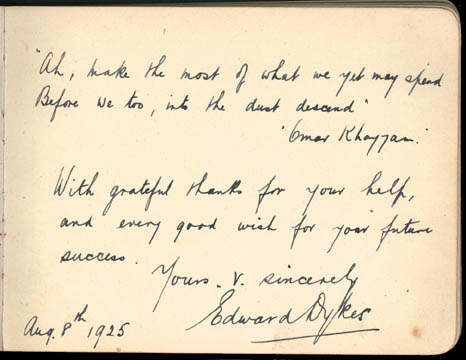 "Ah, make the most of what we yet may spend
Before we too, into the dust descend"
'Omar Khayyam.'
With grateful thanks for your help,
and every good wish for your future
success.
Yours. V. sincerely
Edward Dykes
Aug. 8th 1925